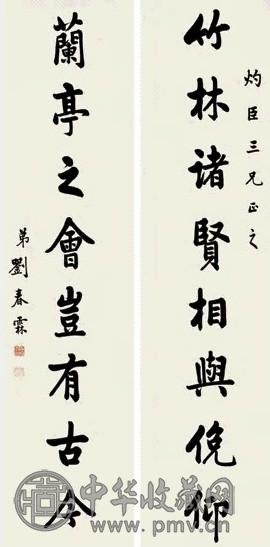 灼臣三兄正之
竹林诸賢相與俛仰
蘭亭之會豈有古今
弟劉春霖
中华收藏网
www.pmv.cn